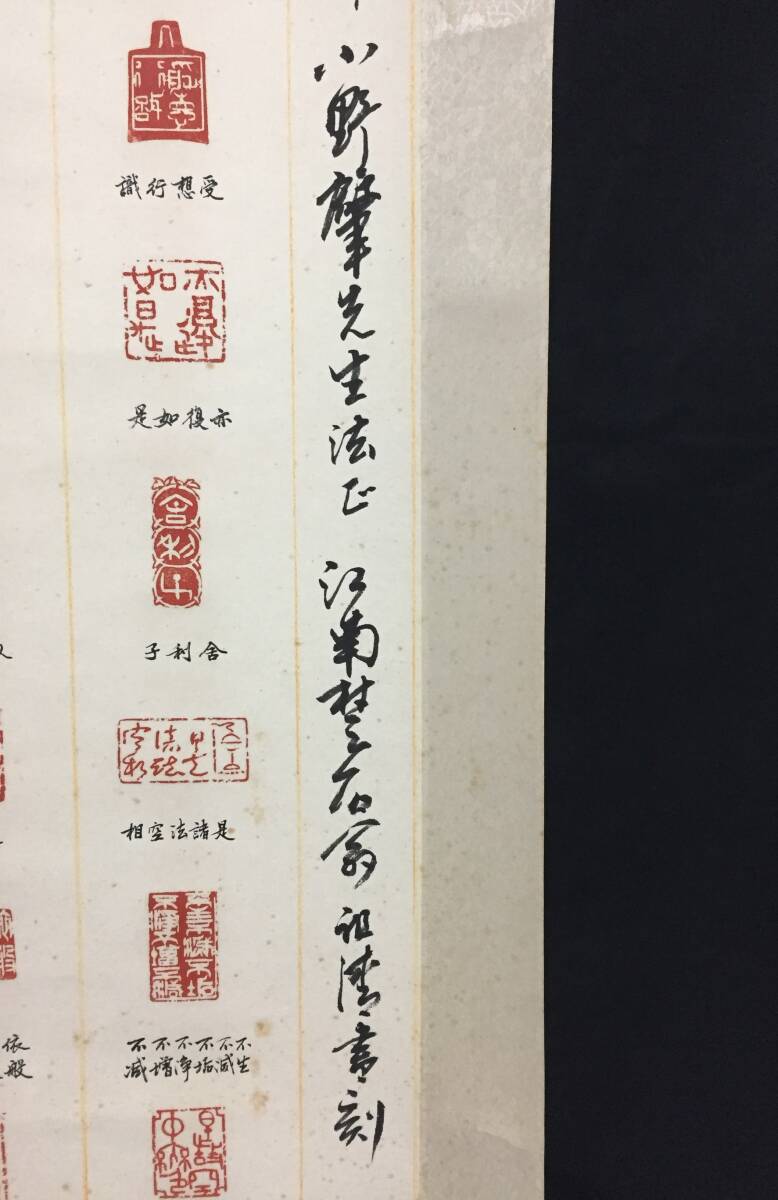 小野肇先生法正 江南楚石翁 祖清書刻
受想行識
亦復如是
舍利子
是諸法空相
不生
不滅
不垢
不淨
不增
不減
依
般